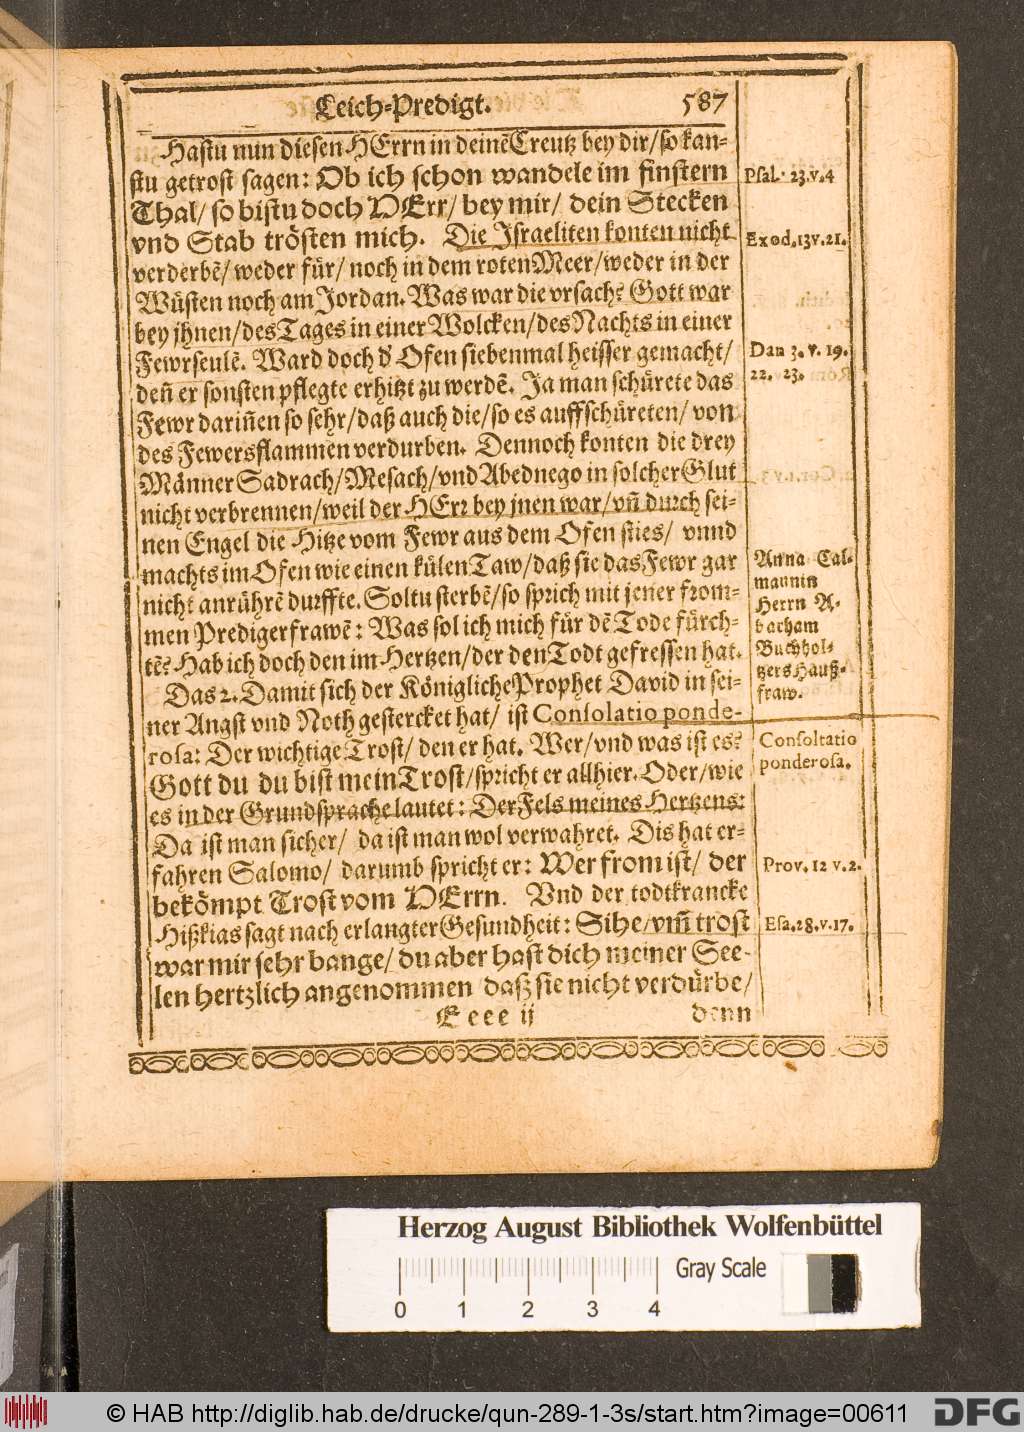 Leich-Predigt. 587
Hastu nun diesen HErrn in deinẽ Creutz bey dir/ so kan-
stu getrost sagen: Ob ich schon wandele im finstern
Thal/ so bistu doch HErr/ bey mir/ dein Stecken
vnd Stab trösten mich. Die Israeliten konten nicht
verderbẽ/ weder für/ noch in dem roten Meer/ weder in der
Wüsten noch am Jordan. Was war die vrsach? Gott war
bey jhnen/ des Tages in einer Wolcken/ des Nachts in einer
Fewrseulẽ. Ward doch d' Ofen siebenmal heisser gemacht/
deñ er sonsten pflegte erhitzt zu werdẽ. Ja man schürete das
Fewr dariñen so sehr/ daß auch die/ so es auffschüreten/ von
des Fewersflammen verdurben. Dennoch konten die drey
Männer Sadrach/ Mesach/ vnd Abednego in solcher Glut
nicht verbrennen/ weil der HErr bey jnen war/ vñ durch sei-
nen Engel die Hitze vom Fewr aus dem Ofen sties/ vnnd
machts im Ofen wie einen külen Taw/ daß sie das Fewr gar
nicht anrührẽ durffte. Soltu sterbẽ/ so sprich mit jener from-
men Predigerfrawẽ: Was sol ich mich für dẽ Tode fürch-
tẽ? Hab ich doch den im Hertzen/ der den Todt gefressen hat.
Das 2. Damit sich der Königliche Prophet David in sei-
ner Angst vnd Noth gestercket hat/ ist Consolatio ponde-
rosa: Der wichtige Trost/ den er hat. Wer/ vnd was ist es?
Gott du du bist mein Trost/ spricht er allhier. Oder/ wie
es in der Grundsprache lautet: Der Fels meines Hertzens:
Da ist man sicher/ da ist man wol verwahret. Dis hat er-
fahren Salomo/ darumb spricht er: Wer from ist/ der
bekömpt Trost vom HErrn. Vnd der todtkrancke
Hißkias sagt nach erlangter Gesundheit: Sihe/ vm̃ trost
war mir sehr bange/ du aber hast dich meiner See-
len hertzlich angenommen daß sie nicht verdürbe/
E e e e ij denn
Psal. 23. v. 4
Exod. 13 v. 21.
Dan 3. v. 19.
22. 23.
Anna Cal-
maunin
Herrn A-
bacham
Buchhol-
tzers Hauß-
fraw.
Consoltatio
ponderosa.
Prov. 12 v. 2.
Esa. 28. v. 17.
Herzog August Bibliothek Wolfenbüttel
0 1 2 3 4
Gray Scale
© HAB http://diglib.hab.de/drucke/qun-289-1-3s/start.htm?image=00611
DFG